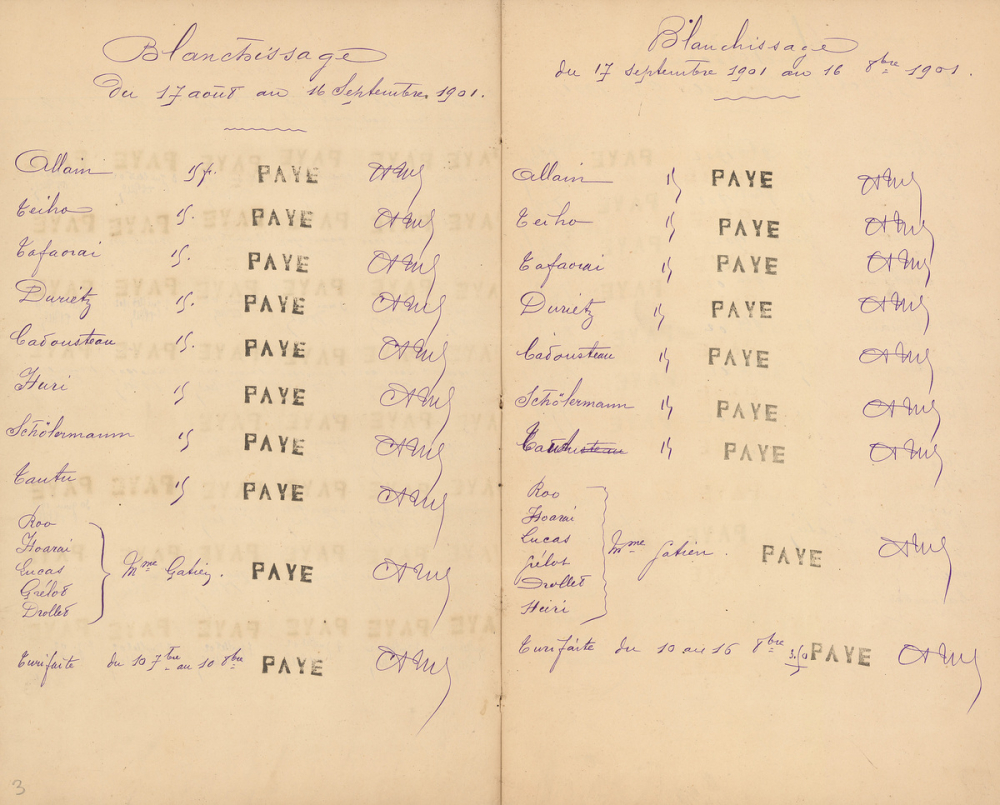 Blanchissage
Du 17 août au 16 Septembre 1901.
Allain 15 fr. PAYE
Teiho 15. PAYE
Tafaorai 15. PAYE
Durietz 15. PAYE
Cadousteau 15. PAYE
Huri 15 PAYE
Schölermann 15 PAYE
Tautu 15 PAYE
Roo
Hoarai
Lucas
Grélot
Drollet
Mme Gatien. PAYE
Turifaite du 10 7bre au 10 8bre PAYE
3
Blanchissage
du 17 septembre 1901 au 16 8bre 1901.
Allain 15 PAYE
Teiho 15 PAYE
Tafaorai 15 PAYE
Durietz 15 PAYE
Cadousteau 15 PAYE
Schölermann 15 PAYE
15 PAYE
Roo
Hoarai
Lucas
Grélot
Drollet
Huri
Mme Gatien. PAYE
Turifaite du 10 au 16 8bre PAYE